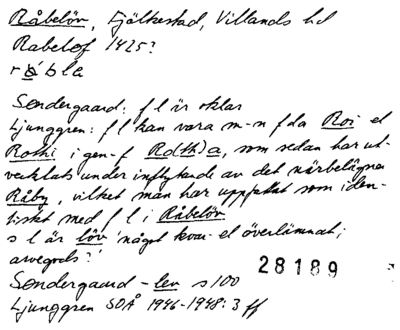 Råbelöv, Fjälkestad, Villands hd
Rabeløf 1425?
råble
Søndergaard: f l är oklar
Ljunggren: f l kan vara m-n fda Roi el
Rothi i gen-f Ro(th)a, som sedan har ut-
vecklats under inflytande av det närbelägna
Råby, vilket man har uppfattat som iden-
tiskt med f l i Råbelöv
s l är löv 'något kvar- el överlämnat;
arvegods?'
28189
Søndergaard -lev s 100
Ljunggren SOÅ 1946-1948:3 ff